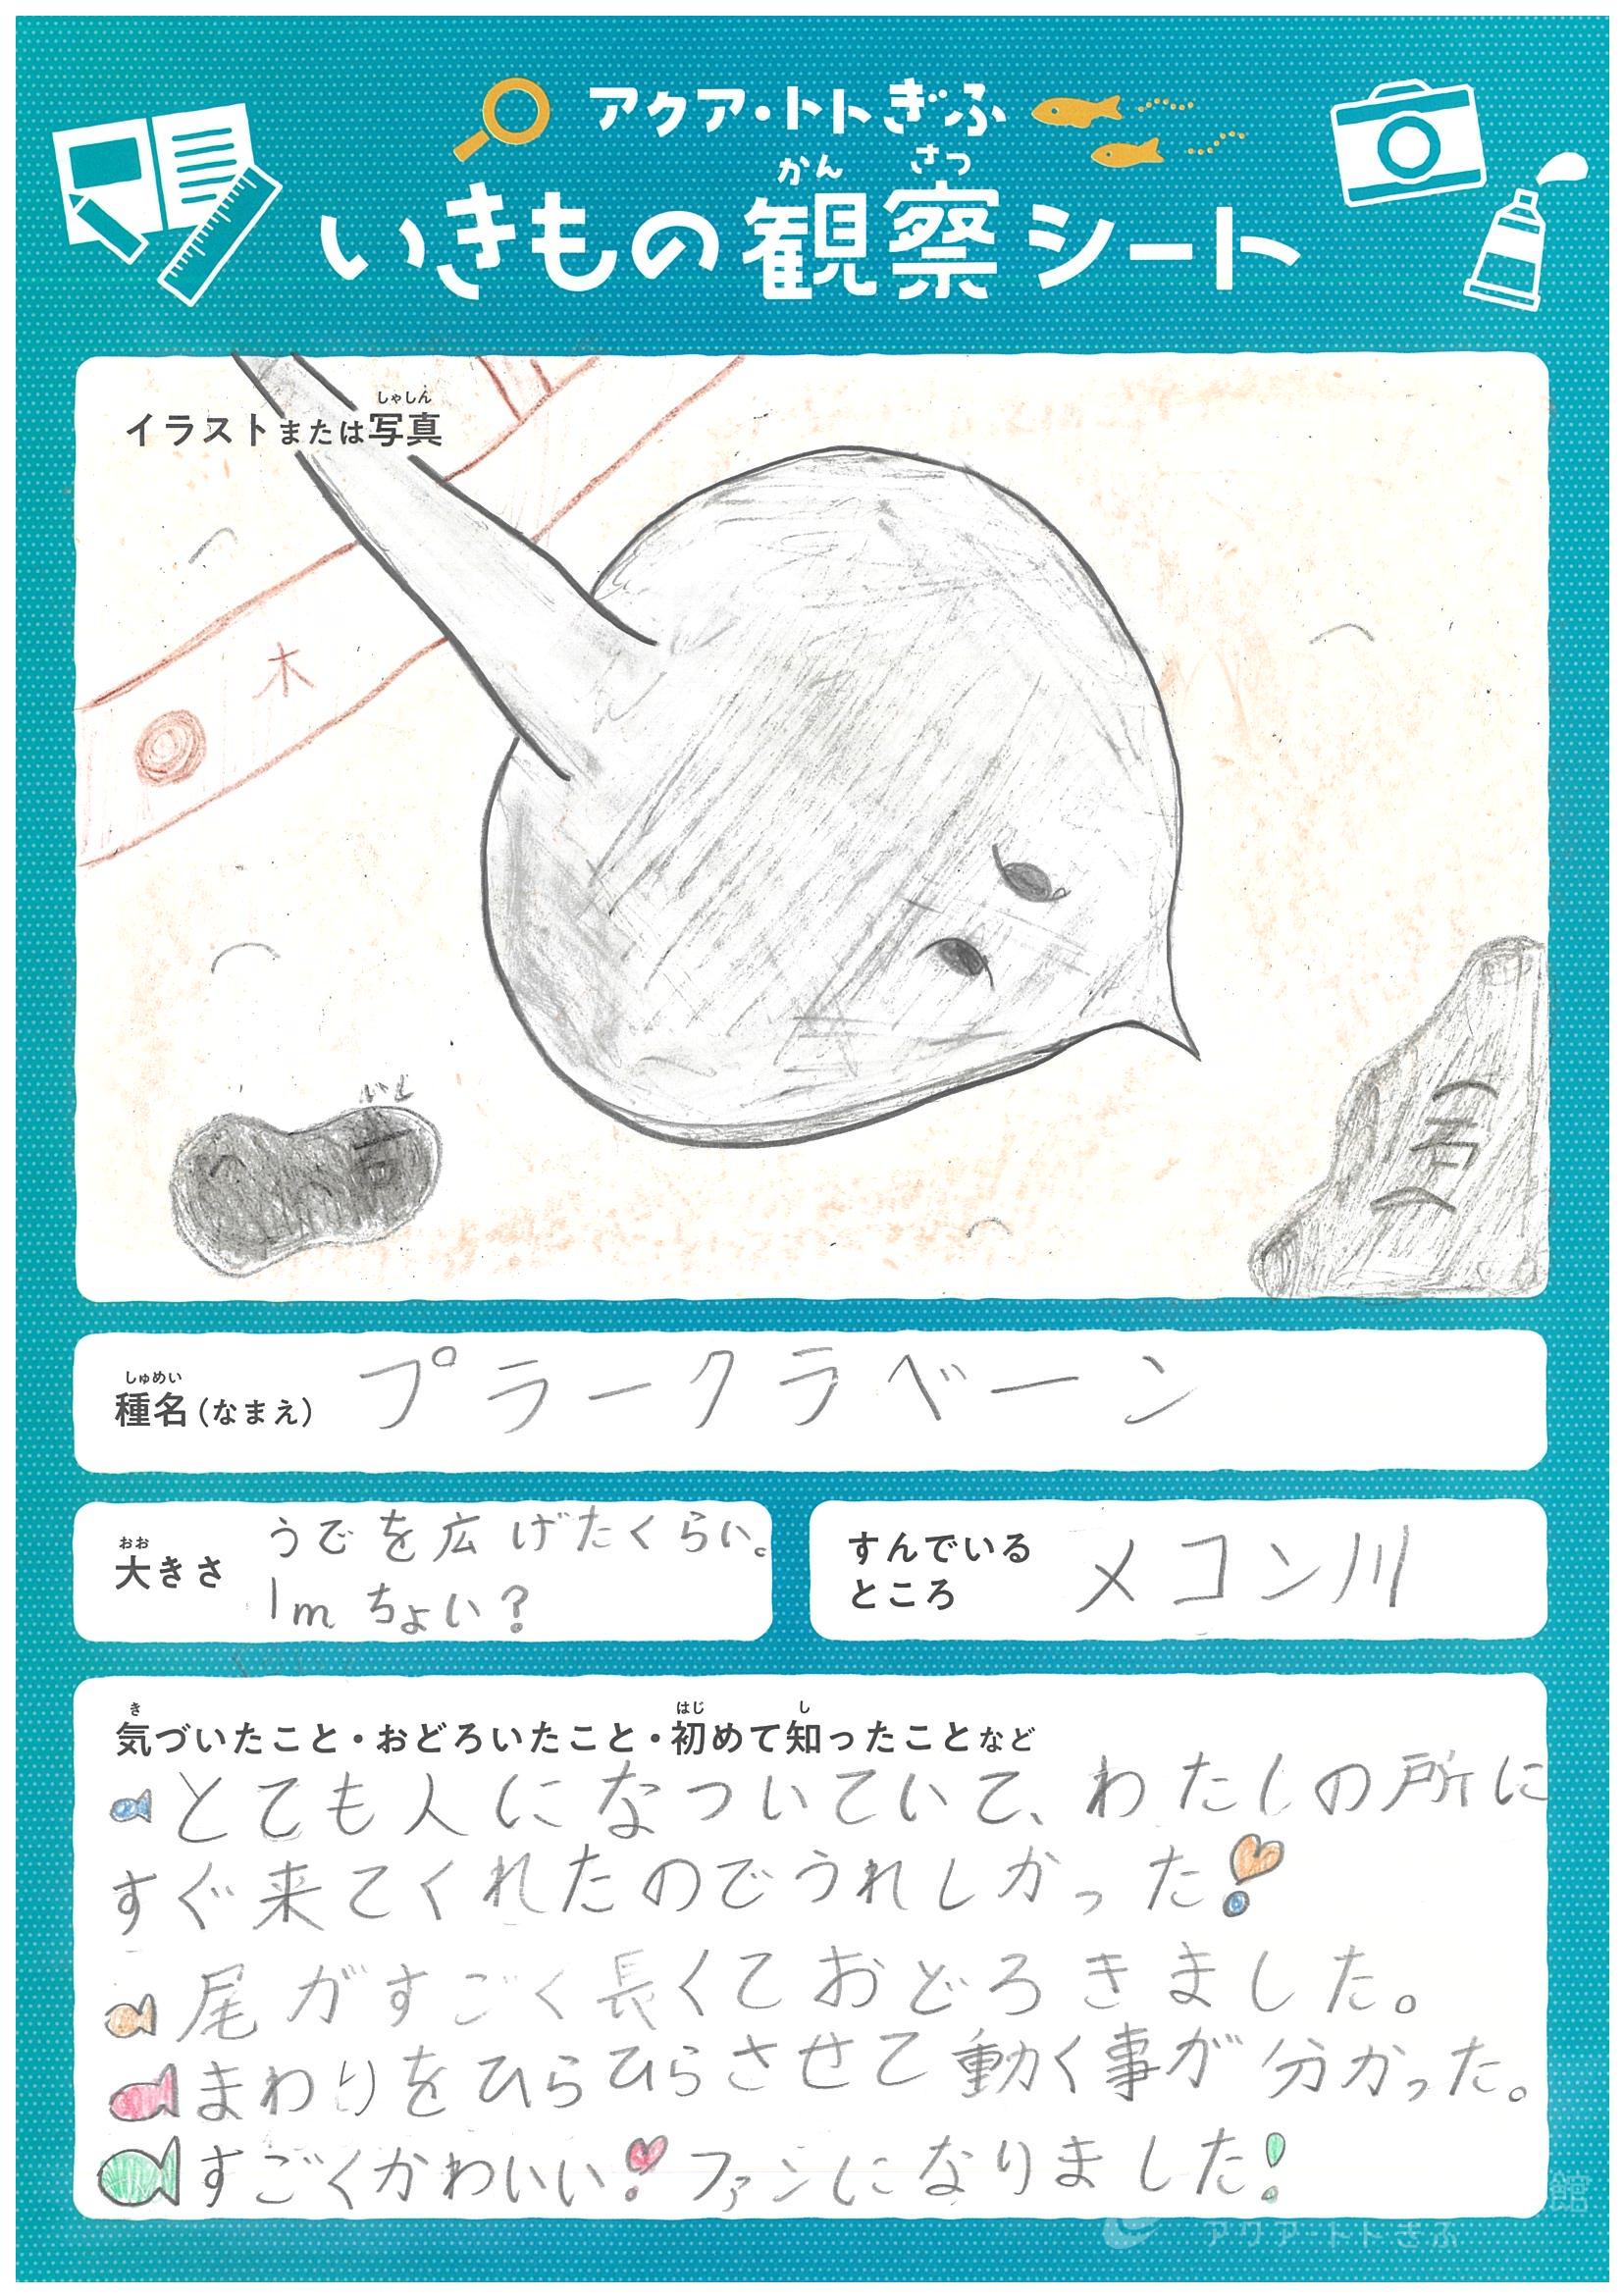 アクア・トトぎふ
かん さつ
いきもの観察シート
しゃしん
イラストまたは写真
木
いし
石
石
しゅめい
種名(なまえ) プラークラベーン
おお
大きさ うでを広げたくらい。
1m ちょい?
すんでいる
ところ メコン川
き はじ し
気づいたこと・おどろいたこと・初めて知ったことなど
とても人になついていて、わたしの所に
すぐ来てくれたのでうれしかった!
尾がすごく長くておどろきました。
まわりをひらひらさせて動く事が分かった。
すごくかわいい!ファンになりました!
館
アクア・トトぎふ